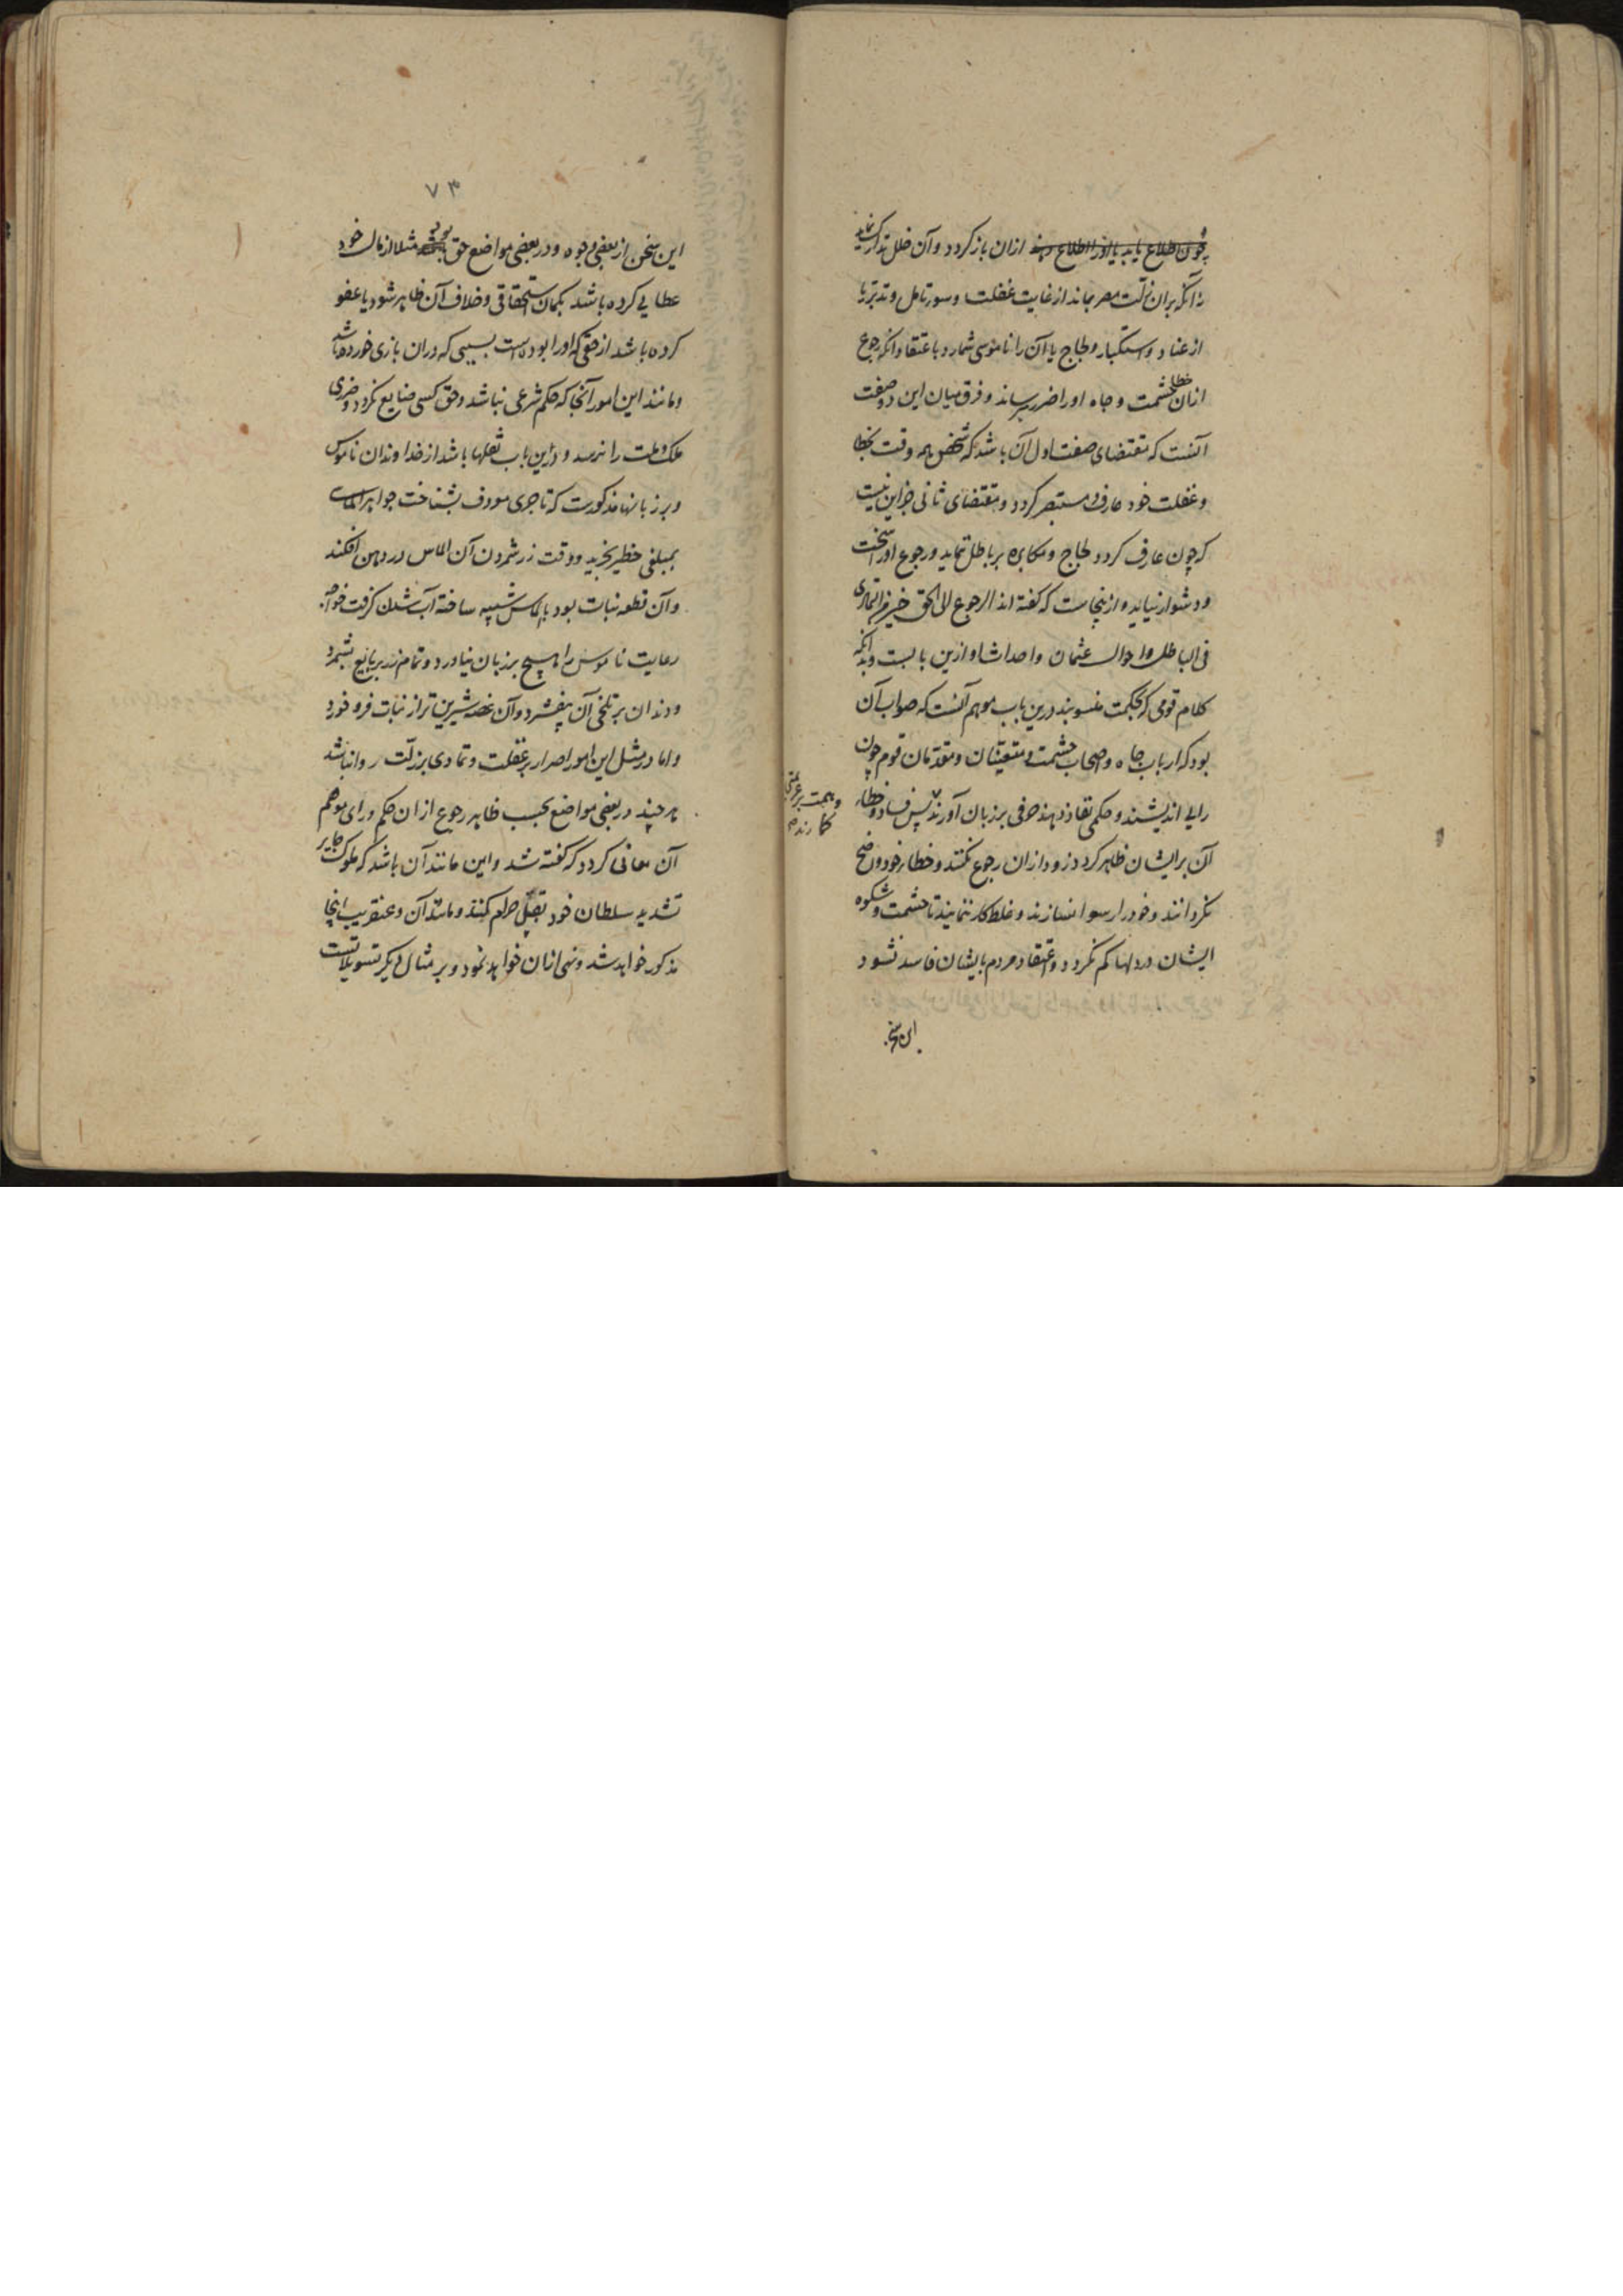 چون اطلاع یابد یا او را اطلاع دهند ازان باز کردد و آن خلل تدارک نماید
نه آنکه بران زلّت مصر بماند از غایت غفلت و سوء تامل و تدبّر یا
از عناد و استکبار و لجاج یا آن را ناموسی شمارد باعتقاد آنکه رجوع
ازان خطا حشمت و جاه او را ضرر رساند و فرق میان این دو صفت
آنست که مقتضای صفت اول آن باشد که شخص همه وقت بخطا
و غفلت خود عارف و مستبصر کردد و مقتضای ثانی جز این نیست
که چون عارف کردد لجاج و مکابره بر باطل ننماید و رجوع او را سخت
و دشوار نیاید و ازینجاست که کفته اند الرجوع الی الحق خیر من التمادی
فی الباطل و احوال عثمان و احداث او ازین بابست و بدانکه
کلام قومی که بحکمت منسوبند درین باب موهم آنست که صواب آن
بود که ارباب جاه و اصحاب حشمت و متعینان و مقدمان قوم چون
رایی اندیشند و حکمی نفاذ دهند حرفی بر زبان آورند پس فساد و خطاء
و همت بر عزمی
کمارند
آن بر ایشان ظاهر کردد زود ازان رجوع نکنند و خطاء خود واضح
نکردانند و خود را رسوا نسازند و غلط کار ننمایند تا حشمت و شکوه
ایشان در دلها کم نکردد و اعتقاد مردم بایشان فاسد نشود
این سخن
۷۳
این سخن از بعضی وجوه و در بعضی مواضع حق بود مثلا از مال خود
عطایی کرده باشد بکمان استحقاقی و خلاف آن ظاهر شود یا عفو
کرده باشد از حقی که او را بوده است بسببی که دران بازی خورده باشد
و مانند این امور آنجا که حکم شرعی نباشد و حق کسی ضایع نکردد و ضرری
ملک و ملت را نرسد و درین باب نقلها باشد از خداوندان ناموس
و بر زبانها مذکورست که تاجری معروف بشناخت جواهر الماسی
بمبلغی خطیر بخرید و وقت زر شمردن آن الماس در دهن افکند
و آن قطعه نبات بود بالماس شبیه ساخته آب شدن کرفت خواجه
رعایت ناموس را هیچ بر زبان نیاورد و تمام زر ببایع بشمرد
و دندان بر تلخی آن بیفشرد و آن غصه شیرین تر از نبات فرو خورد
و اما در مثل این امور اصرار بر غفلت و تمادی بر زلّت روا نباشد
هر چند در بعضی مواضع بحسب ظاهر رجوع ازان حکم و رای موهم
آن معانی کردد که کفته شد و این مانند آن باشد که ملوک جایر
تشدید سلطان خود بقتل حرام کنند و مانند آن و عنقریب اینجا
مذکور خواهد شد و نهی ازان خواهد نمود و بر مثال دیکر تسویلاتست